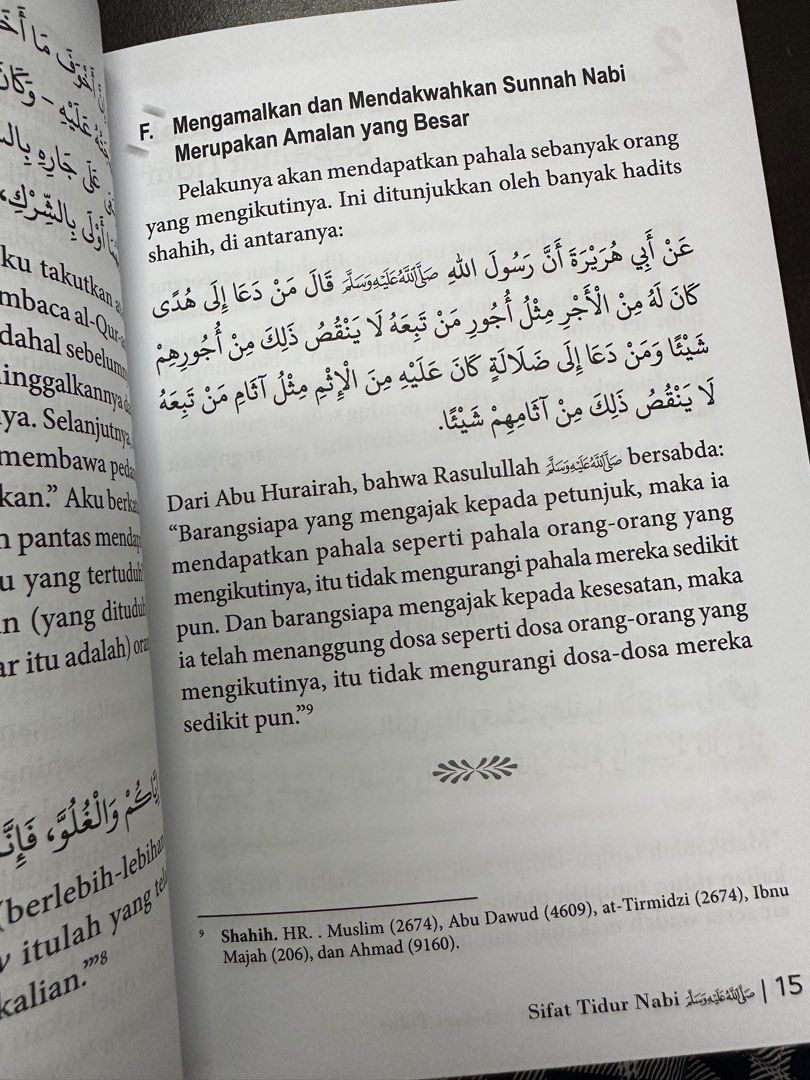 أَخْوَفَ مَا
عَلَيْهِ – وَكَانَ
عَلَى جَارِهِ
أَوْلَى بِالشِّرْكِ،
ku takutkan
mbaca al-Qur-
dahal sebelum
inggalkannya
ya. Selanjutnya,
membawa
kan.” Aku
n pantas
u yang tertuduh
n (yang dituduh
ar itu adalah)
إِيَّاكُمْ وَالْغُلُوَّ، فَإِنَّ
(berlebih-lebihan
itulah yang
kalian.’”8
F. Mengamalkan dan Mendakwahkan Sunnah Nabi
Merupakan Amalan yang Besar
Pelakunya akan mendapatkan pahala sebanyak orang
yang mengikutinya. Ini ditunjukkan oleh banyak hadits
shahih, di antaranya:
عَنْ أَبِي هُرَيْرَةَ أَنَّ رَسُولَ اللهِ ﷺ قَالَ مَنْ دَعَا إِلَى هُدًى
كَانَ لَهُ مِنَ الْأَجْرِ مِثْلُ أُجُورِ مَنْ تَبِعَهُ لَا يَنْقُصُ ذَلِكَ مِنْ أُجُورِهِمْ
شَيْئًا وَمَنْ دَعَا إِلَى ضَلَالَةٍ كَانَ عَلَيْهِ مِنَ الْإِثْمِ مِثْلُ آثَامِ مَنْ تَبِعَهُ
لَا يَنْقُصُ ذَلِكَ مِنْ آثَامِهِمْ شَيْئًا.
Dari Abu Hurairah, bahwa Rasulullah ﷺ bersabda:
“Barangsiapa yang mengajak kepada petunjuk, maka ia
mendapatkan pahala seperti pahala orang-orang yang
mengikutinya, itu tidak mengurangi pahala mereka sedikit
pun. Dan barangsiapa mengajak kepada kesesatan, maka
ia telah menanggung dosa seperti dosa orang-orang yang
mengikutinya, itu tidak mengurangi dosa-dosa mereka
sedikit pun.”9
9 Shahih. HR. . Muslim (2674), Abu Dawud (4609), at-Tirmidzi (2674), Ibnu
Majah (206), dan Ahmad (9160).
Sifat Tidur Nabi ﷺ | 15